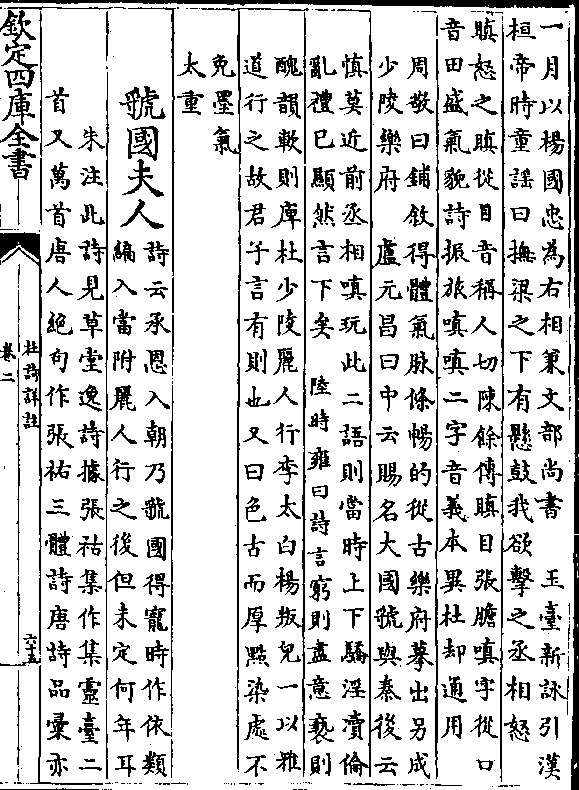 一月以楊國忠為右相兼文部尚書　玉臺新詠引漢
桓帝時童謡曰撫梁之下有懸鼓我欲擊之丞相怒
瞋怒之瞋從目音稱人切陳餘傳瞋目張膽嗔字從口
音田盛氣貌詩振旅嗔嗔二字音義本異杜却通用
周敬曰鋪敘得體氣脉條暢的從古樂府摹出另成
少陵樂府　盧元昌曰中云賜名大國虢與秦後云
慎莫近前丞相嗔玩此二語則當時上下驕淫瀆倫
亂禮已顯然言下矣　陸時雍曰詩言窮則盡意褻則
醜韻軟則庳杜少陵麗人行李太白楊叛兒一以雅
道行之故君子言有則也又曰色古而厚點染處不
免墨氣
太重
虢國夫人
詩云承恩入朝乃虢國得寵時作依類
編入當附麗人行之後但未定何年耳
朱注此詩見草堂逸詩據張祜集作集靈臺二
首又萬首唐人絶句作張祐三體詩唐詩品彚亦
欽定四庫全書
杜詩詳註
卷二
六十五